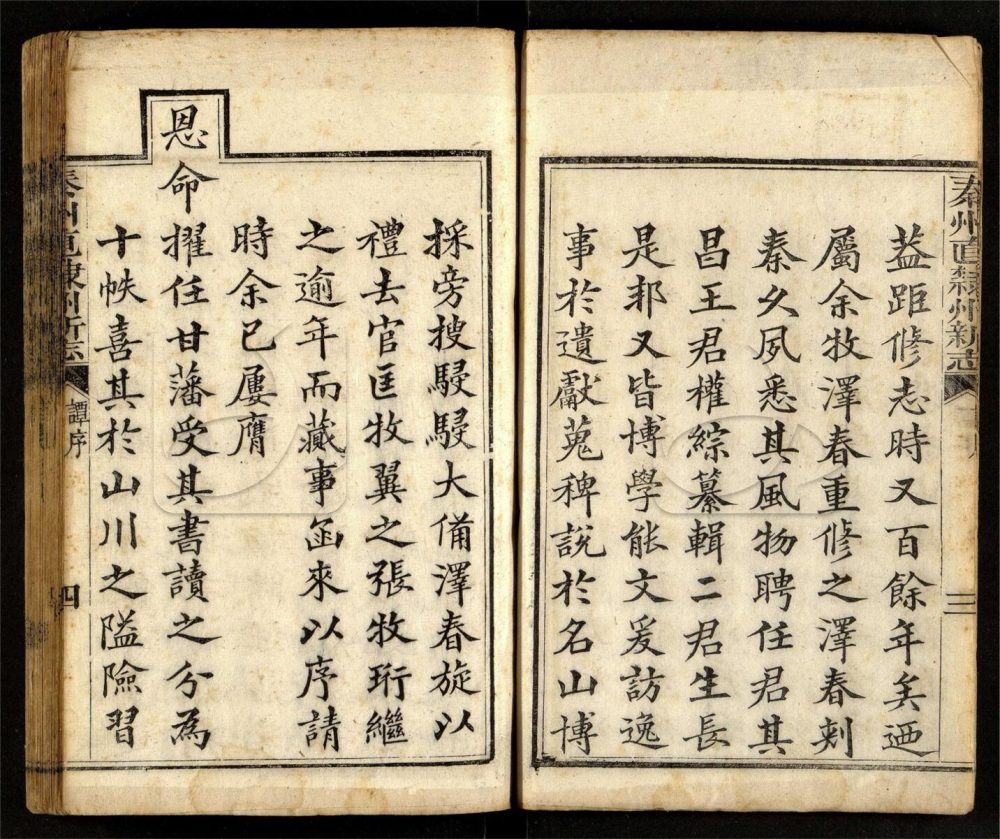 秦州直隸州新志
三
葢距修志時又百餘年矣迺
屬余牧澤春重修之澤春刺
秦久夙悉其風物聘任君其
昌王君權綜纂輯二君生長
是邦又皆博學能文爰訪逸
事於遺獻蒐稗說於名山博
採旁搜駸駸大備澤春旋以
禮去官匡牧翼之張牧珩繼
之逾年而蕆事函來以序請
時余已屢膺
恩命擢任甘藩受其書讀之分為
十帙喜其於山川之隘險習
秦州直隸州新志
譚序
四